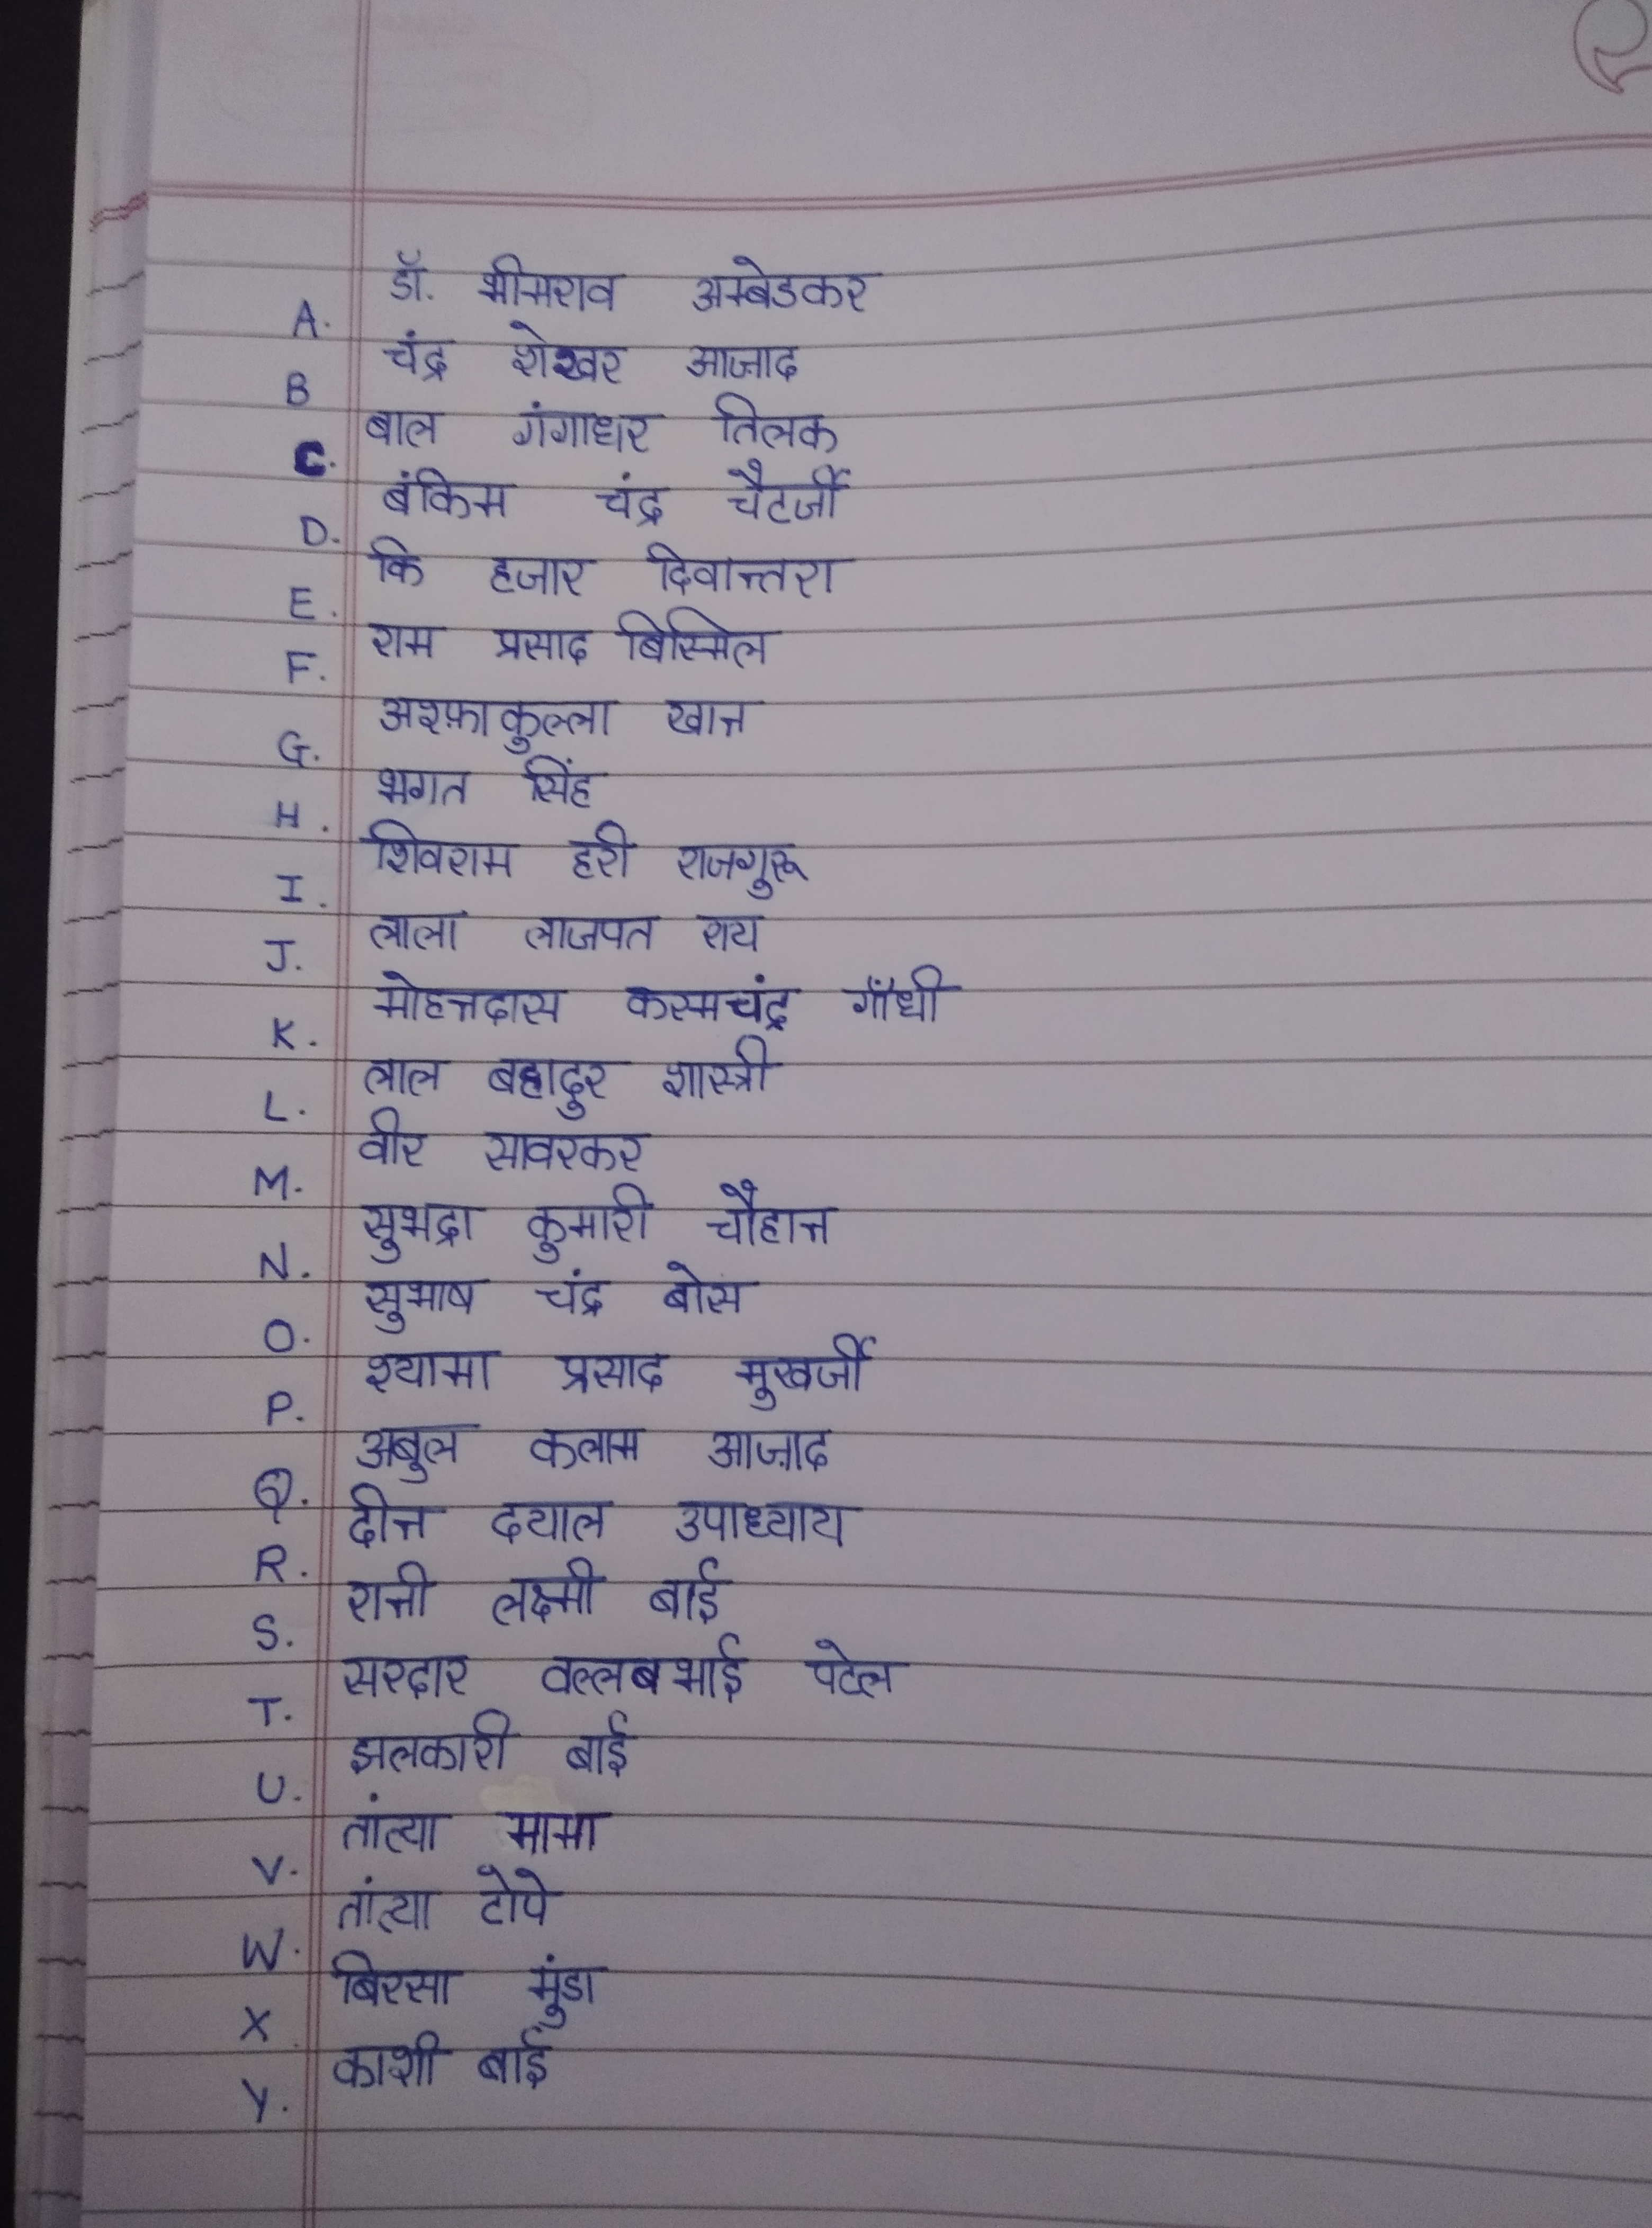 A. डॉ. भीमराव अम्बेडकर
B चंद्र शेखर आजाद
C. बाल गंगाधर तिलक
D. बंकिम चंद्र चैटर्जी
E. कि हजार दिवान्तरा
F. राम प्रसाद बिस्मिल
G. अश्फ़ाकुल्ला खान
H. भगत सिंह
I. शिवराम हरी राजगुरू
J. लाला लाजपत राय
K. मोहनदास करमचंद्र गाँधी
L. लाल बहादुर शास्त्री
M. वीर सावरकर
N. सुभद्रा कुमारी चौहान
O. सुभाष चंद्र बोस
P. श्यामा प्रसाद मुखर्जी
Q. अबुल कलाम आज़ाद
R. दीन दयाल उपाध्याय
S. रानी लक्ष्मी बाई
T. सरदार वल्लबभाई पटेल
U. झलकारी बाई
V. तांत्या मामा
W. तांत्या टोपे
X. बिरसा मुंडा
Y. काशी बाई